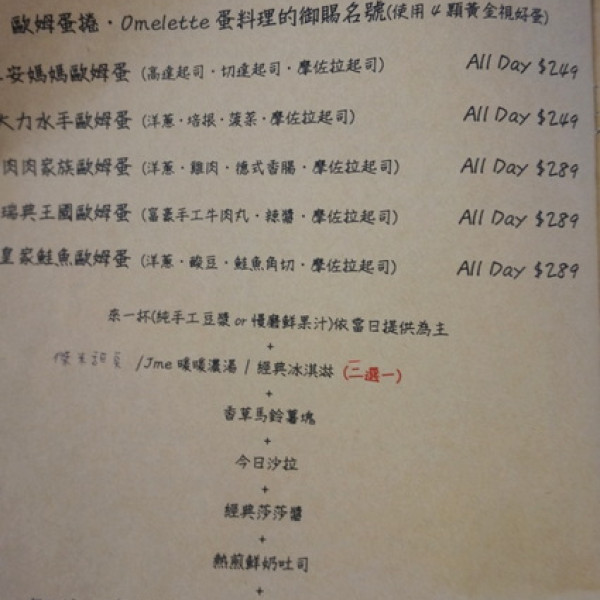 歐姆蛋捲・Omelette 蛋料理的御賜名號(使用 4 顆黃金視好蛋)
安媽媽歐姆蛋 (高達起司・切達起司・摩佐拉起司) All Day $249
大力水手歐姆蛋 (洋蔥・培根・菠菜・摩佐拉起司) All Day $249
肉肉家族歐姆蛋 (洋蔥・雞肉・德式香腸・摩佐拉起司) All Day $289
瑞典王國歐姆蛋 (富豪手工牛肉丸・辣醬・摩佐拉起司) All Day $289
皇家鮭魚歐姆蛋 (洋蔥・酸豆・鮭魚角切・摩佐拉起司) All Day $289
來一杯(純手工豆漿 or 慢磨鮮果汁)依當日提供為主
+
/Jme 暖暖濃湯 / 經典冰淇淋 (二選一)
+
香草馬鈴薯塊
+
今日沙拉
+
經典莎莎醬
+
熱煎鮮奶吐司
+